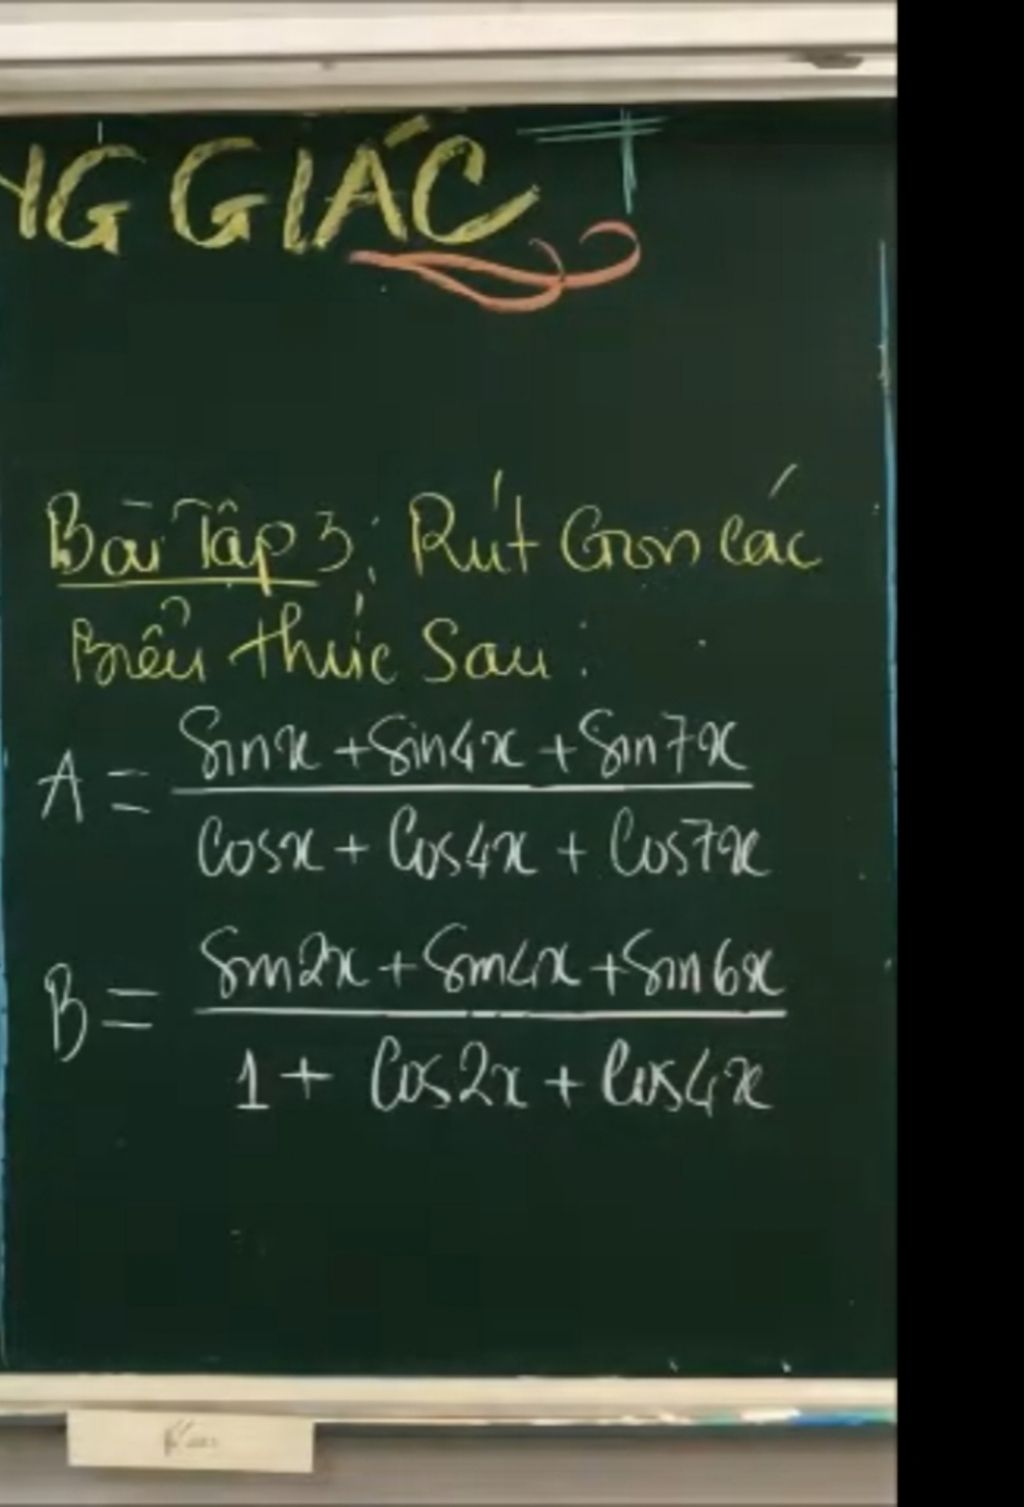 NG GIÁC
Bài Tập 3: Rút Gọn các
Biểu thức Sau:
A = (Sinx + Sin4x + Sin7x) / (Cosx + Cos4x + Cos7x)
B = (Sin2x + Sin4x + Sin6x) / (1 + Cos2x + Cos4x)